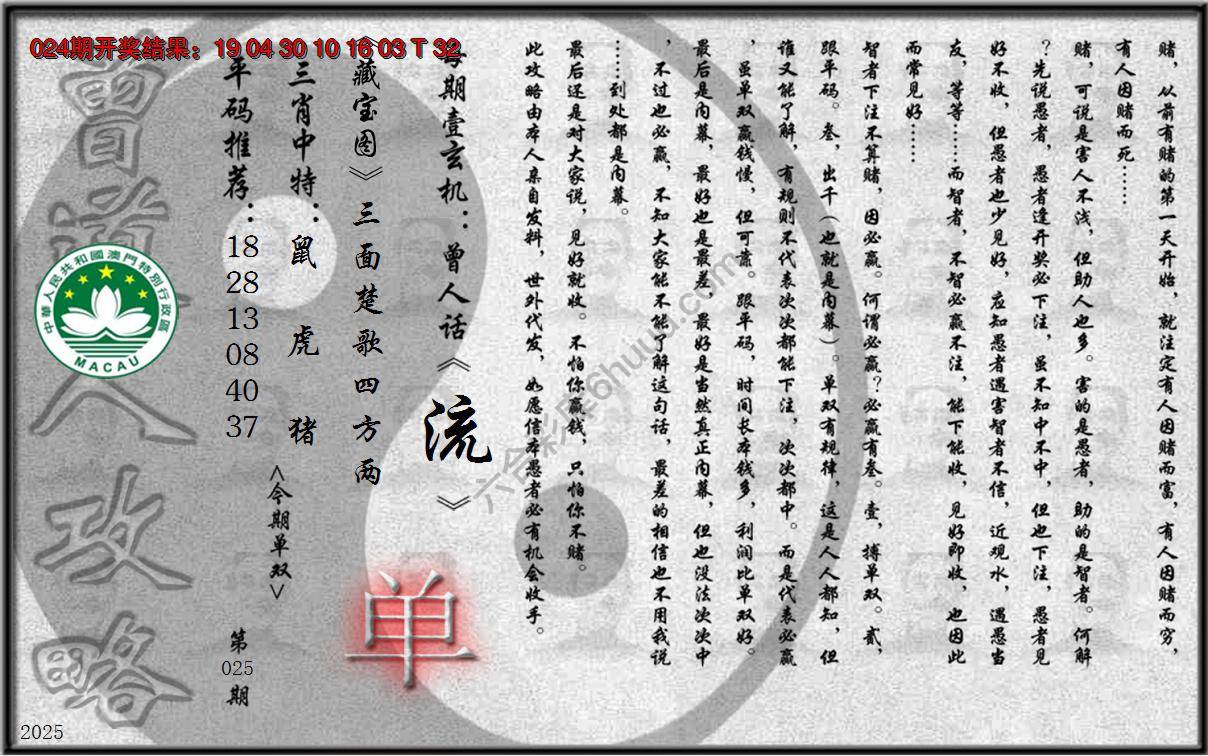 024期开奖结果：19 04 30 10 16 03 T 32
赌，从前有赌的第一天开始，就注定有人因赌而富，有人因赌而穷，
有人因赌而死……
赌，可说是害人不浅，但助人也多。害的是愚者，助的是智者。何解
？先说愚者，愚者逢开奖必下注，虽不知中不中，但也下注，愚者见
好不收，但愚者也少见好，应知愚者遇害智者不信，近观水，遇愚当
友，等等……而智者，不智必赢不注，能下能收，见好即收，也因此
而常见好……
智者下注不算赌，因必赢。何谓必赢？必赢有叁。壹，搏单双。贰，
跟平码。叁，出千（也就是内幕）。单双有规律，这是人人都知，但
谁又能了解，有规则不代表次次都能下注，次次都中。而是代表必赢
，虽单双赢钱慢，但可靠。跟平码，时间长本钱多，利润比单双好。
最后是内幕，最好也是最差，最好是当然真正内幕，但也没法次次中
，不过也必赢，不知大家能不能了解这句话，最差的相信也不用我说
……到处都是内幕。
最后还是对大家说，见好就收。不怕你赢钱，只怕你不赌。
此攻略由本人亲自发料，世外代发，如愿信本愚者必有机会收手。
每期壹玄机：曾人话《流》
《藏宝图》三面楚歌四方两
三肖中特：鼠 虎 猪
<今期单双>
单
平码推荐：18 28 13 08 40 37
第025期
曾道人攻略
中華人民共和國澳門特別行政區
MACAU
六合彩库6huuu.com
2025